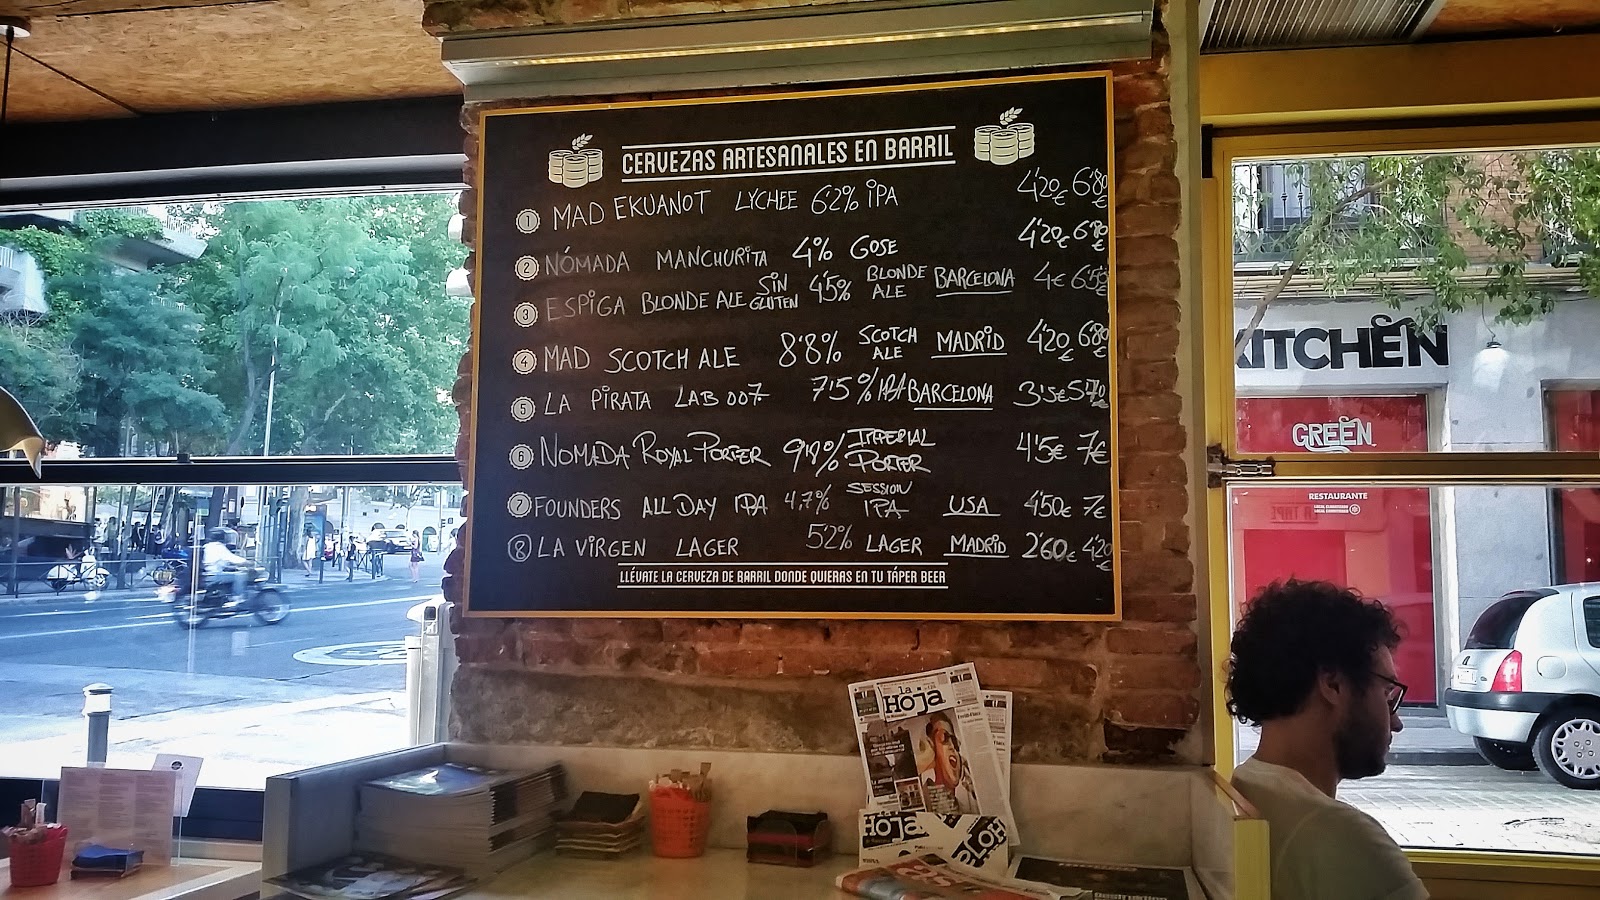 CERVEZAS ARTESANALES EN BARRIL
1 MAD EKUANOT LYCHEE 6'2% IPA 4'20€ 6'80€
2 NÓMADA MANCHURITA 4% GOSE 4'20€ 6'80€
3 ESPIGA BLONDE ALE SIN GLUTEN 4'5% BLONDE ALE BARCELONA 4€ 6'50€
4 MAD SCOTCH ALE 8'8% SCOTCH ALE MADRID 4'20€ 6'80€
5 LA PIRATA LAB 007. 7'5% BARCELONA 3'5€
6 NOMADA ROYAL PORTER IMPERIAL PORTER 4'5€ 7€
7 FOUNDERS ALL DAY IPA 4,7% SESSION IPA USA 4'50€ 7€
8 LA VIRGEN LAGER 5'2% LAGER MADRID 2'60€ 4'20
LLÉVATE LA CERVEZA DE BARRIL DONDE QUIERAS EN TU TÁPER BEER
KITCHEN
GREEN
RESTAURANTE
LOCAL CLIMATIZADO
la HOJA
HOJA